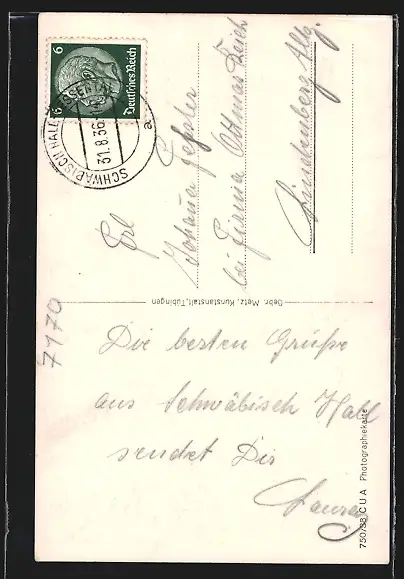 6 6
Deutsches Reich
SCHWÄBISCH HALL
31.8.36
a
Frl
Johana
bei Firma Ottmar Reich
Lindenberg Allg.
Gebr. Metz, Kunstanstalt, Tübingen
7170
Die besten Grüße
aus Schwäbisch Hall
sendet Dir
Laura
750/38 C U A Photographiekarte